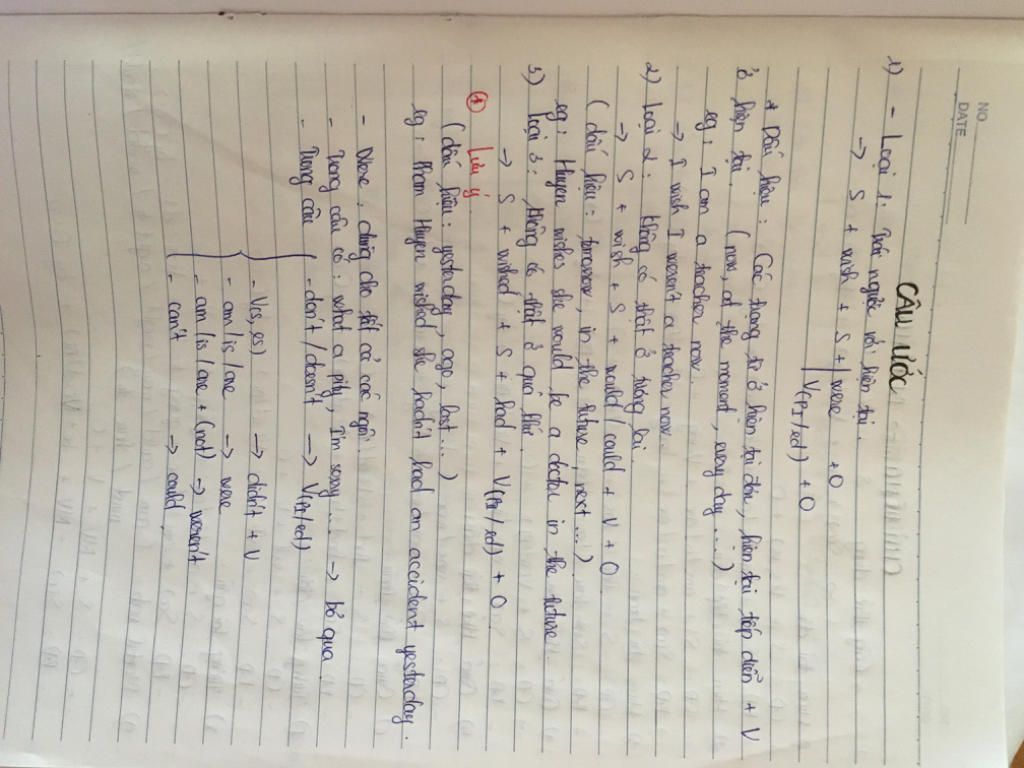 NO
DATE
CÂU ƯỚC
1) - Loại 1: Trái ngược với hiện tại.
→ S + wish + S + | were + O
| V(PI/ed) + O
* Dấu hiệu: Các trạng từ ở hiện tại đơn, hiện tại tiếp diễn + V
ở hiện tại. (now, at the moment, every day ...)
eg: I am a teacher now.
→ I wish I weren't a teacher now
2) Loại 2: không có thật ở tương lai.
→ S + wish + S + would/could + V + O
(dấu hiệu: tomorrow, in the future, next ...)
eg: Huyen wishes she would be a doctor in the future.
3) Loại 3: không có thật ở quá khứ.
→ S + wished + S + had + V(PII/ed) + O
* Lưu ý
(dấu hiệu: yesterday, ago, last ...)
eg: Pham Huyen wished she hadn't had an accident yesterday.
- Were: dùng cho tất cả các ngôi.
- Trong câu có: what a pity, I'm sorry ... → bỏ qua
- Trong câu - don't/doesn't → V(PI/ed)
- V(s, es) → didn't + V
- am/is/are → were
- am/is/are + (not) → weren't
- can't → could